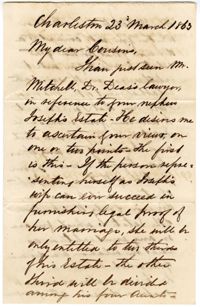 Charleston 23d March 1863
My dear Cousons,
I have just seen Mr.
Mitchell, Dr. Deas's Lawyer,
in reference to your nephew
Joseph's Estate - He desires me
to ascertain your views, on
one or two points - The first
is this - If the person repre-
senting himself as Joseph's
wife can ever succeed in
furnishing legal proof of
her marriage, she will be
only entitled to two thirds
of his Estate - the other
third will be divided
among his four Aunts -